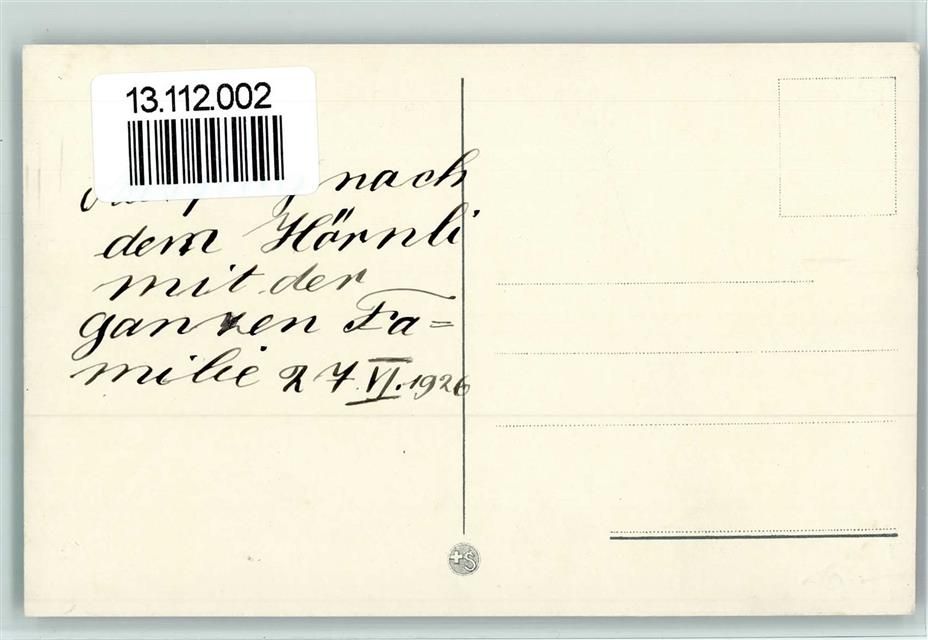 13.112.002
nach
dem Hörnli
mit der
ganzen Fa=
milie 27.VI.1926
+S